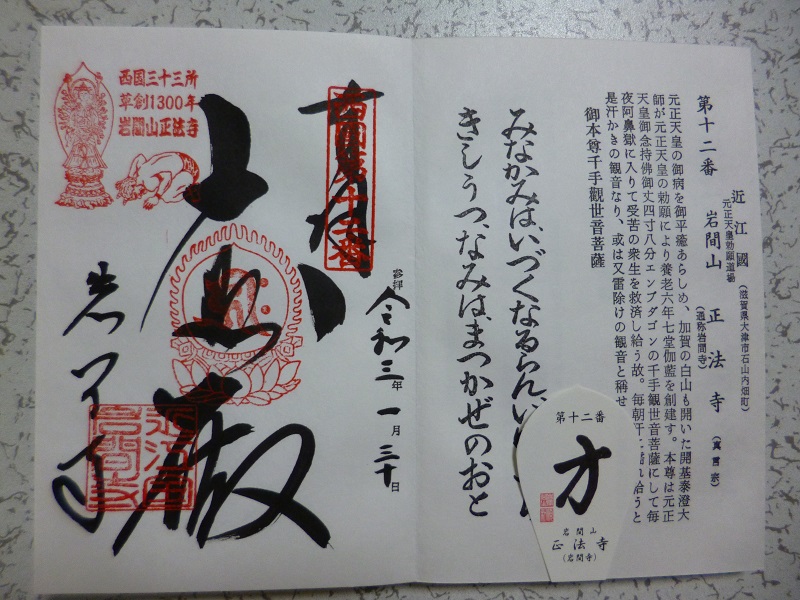 第十二番
近江國
元正天皇勅願道場
岩間山 正法寺
(滋賀県大津市石山内畑町)
(通称岩間寺)
(真言宗)
元正天皇の御病を御平癒あらしめ、加賀の白山も開いた開基泰澄大
師が元正天皇の勅願により養老六年七堂伽藍を創建す。本尊は元正
天皇御念持佛御丈四寸八分エンブダゴンの千手観世音菩薩にして毎
夜阿鼻獄に入りて受苦の衆生を救済し給う故。毎朝汗に濡れ給うと
是汗かきの観音なり、或は又雷除けの観音と稱せ
御本尊千手觀世音菩薩
みなかみは、いづくなるらん、い
きしうつ、なみは、まつかぜのおと
第十二番
方
岩間山
正法寺
(岩間寺)
西国三十三所
草創1300年
岩間山正法寺
西國第十二番
参拝
令和三年一月三十日
大悲殿
岩間寺